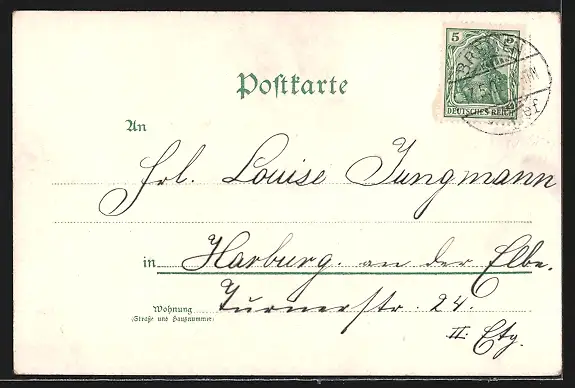 5
DEUTSCHES REICH
BREMEN
Postkarte
An
Frl. Louise Jungmann
in Harburg. an der Elbe.
Wohnung Turnerstr. 24.
(Straße und Hausnummer)
II. Etg.